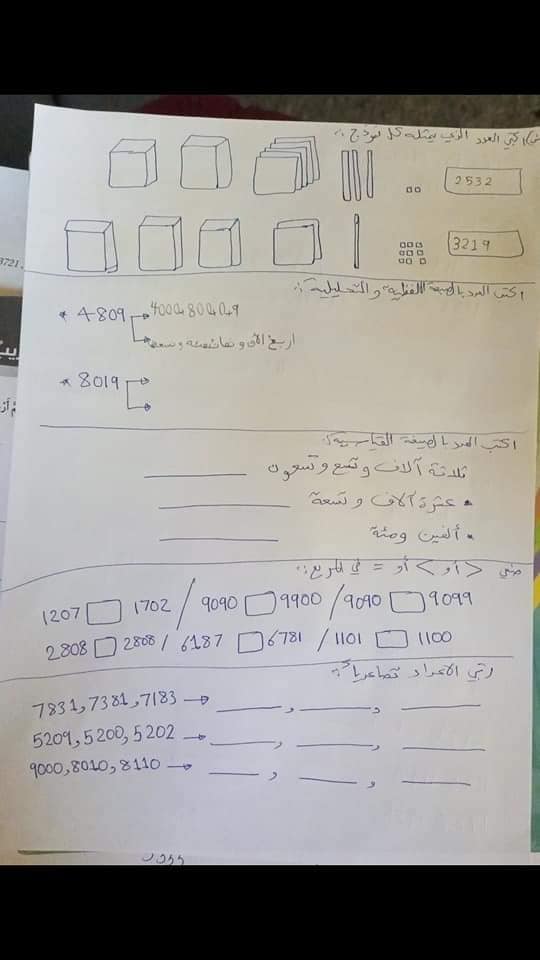 اكتبي العدد الذي يمثله كل نموذج :
2532
3219
3721
اكتب العدد بالصيغة اللفظية والتحليلية :
* 4809
4000،800،0،9
اربع الاف و ثمانمئة وتسعة
* 8019
اكتب العدد بالصيغة القياسية :
ثلاثة آلاف وتسع وتسعون
• عشرة آلاف وتسعة
• ألفين ومئة
ضعي > أو < أو = في المربع :
1207 □ 1702 / 9090 □ 9900 / 9090 □ 9099
2808 □ 2808 / 6187 □ 6781 / 1101 □ 1100
رتبي الاعداد تصاعدياً :
7831, 7381, 7183 → ____ , ____ , ____
5209, 5200, 5202 → ____ , ____ , ____
9000, 8010, 8110 → ____ , ____ , ____